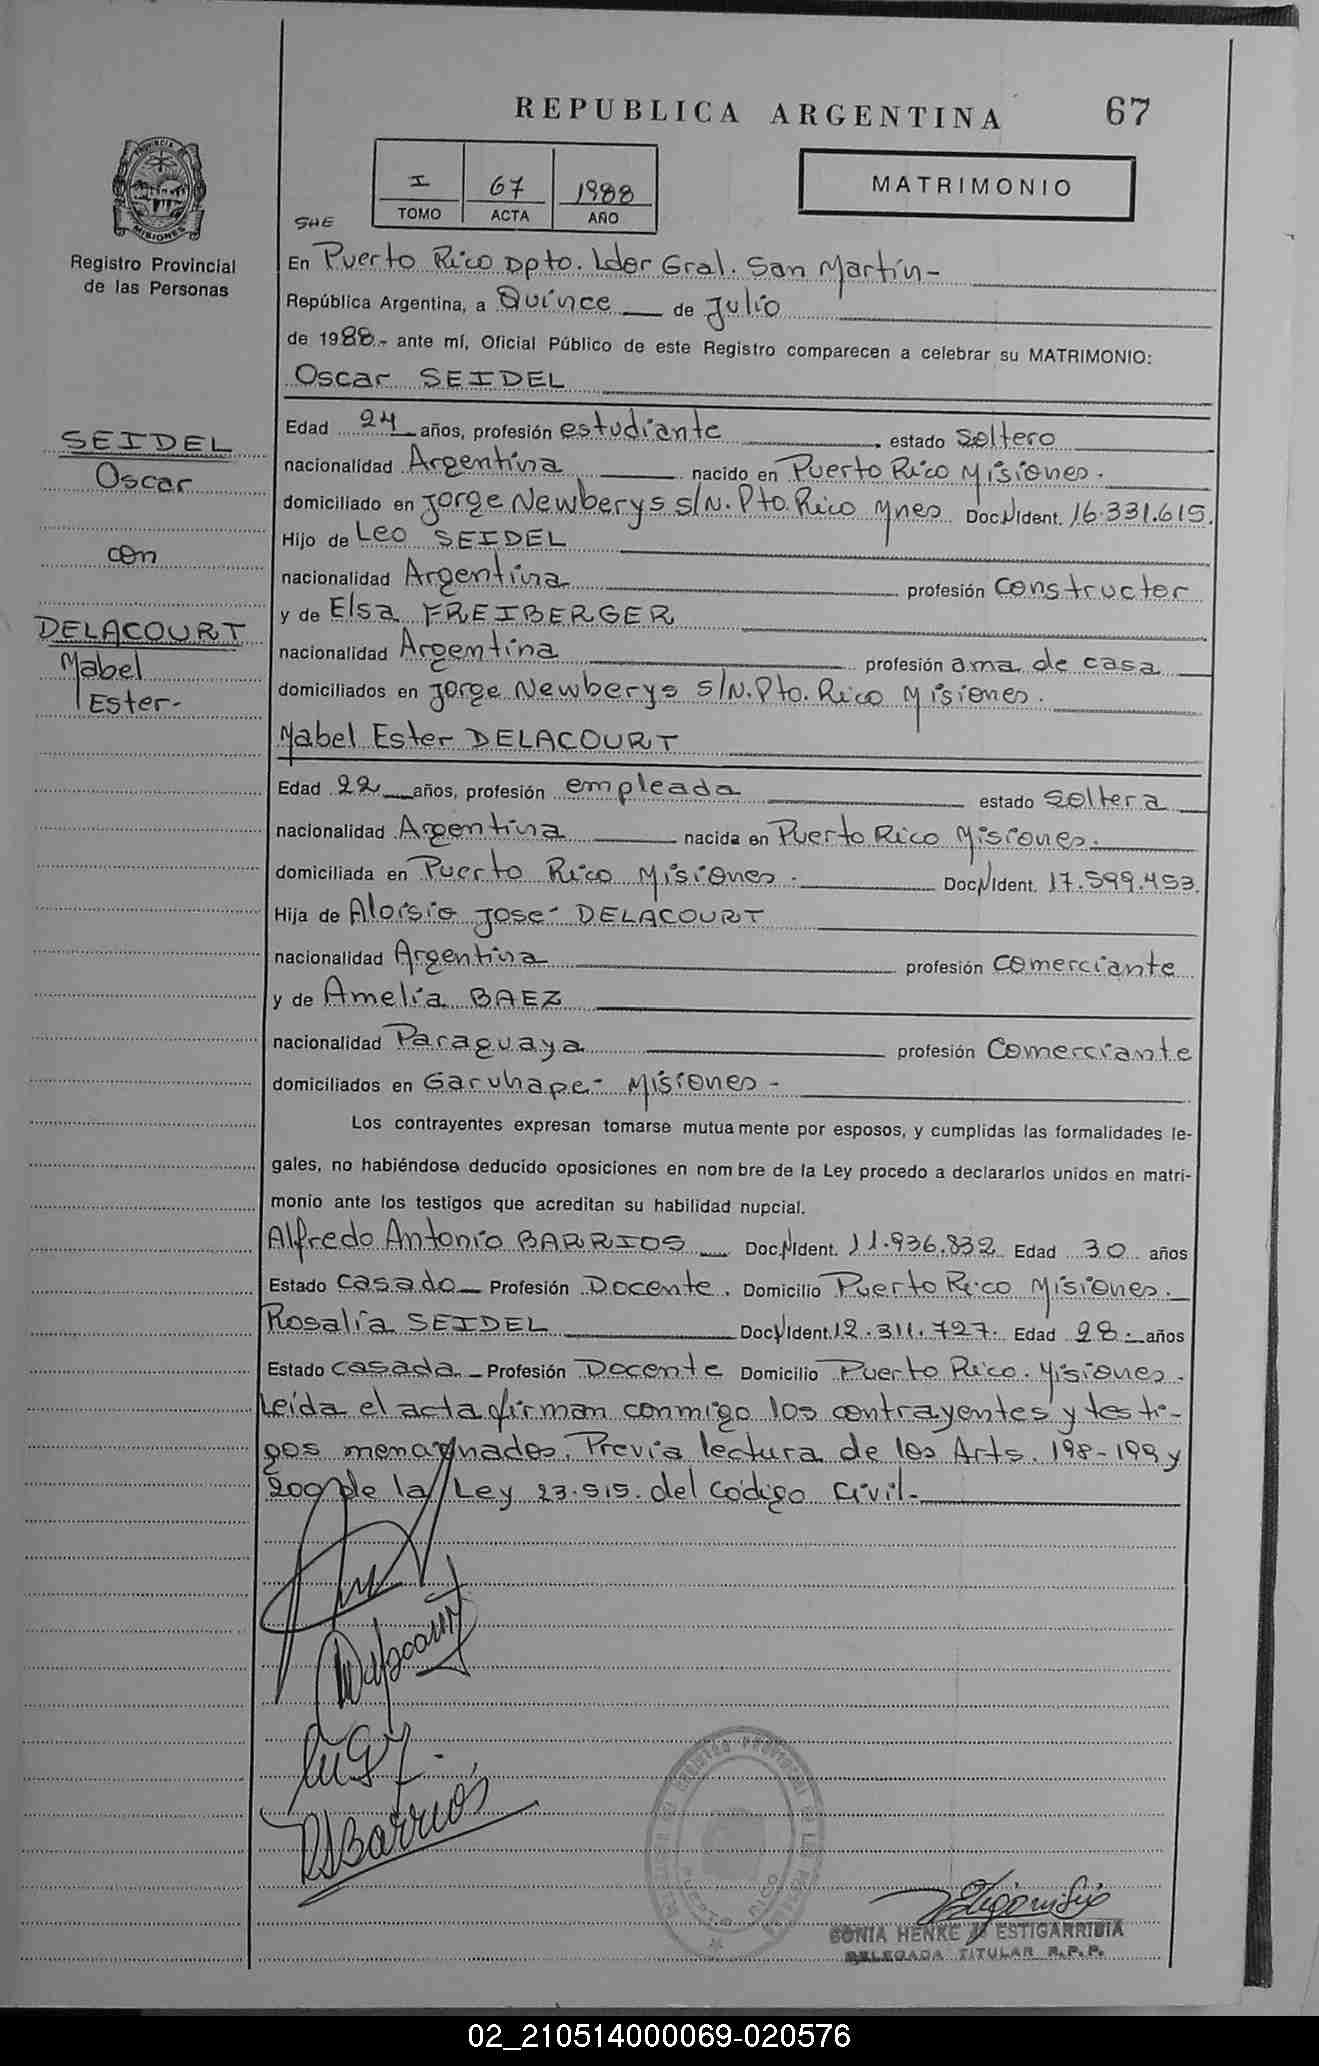 REPUBLICA ARGENTINA 67
PROVINCIA DE MISIONES
Registro Provincial
de las Personas
I 67 1988
TOMO ACTA AÑO
MATRIMONIO
SHE
En Puerto Rico Dpto. Lder Gral. San Martín-
República Argentina, a Quince de Julio
de 1988.- ante mí, Oficial Público de este Registro comparecen a celebrar su MATRIMONIO:
Oscar SEIDEL
SEIDEL
Oscar
con
DELACOURT
Mabel
Ester-
Edad 24 años, profesión estudiante estado Soltero
nacionalidad Argentina nacido en Puerto Rico Misiones.
domiciliado en Jorge Newberys s/N. Pto. Rico Mnes Doc.N Ident. 16.331.615.
Hijo de Leo SEIDEL
nacionalidad Argentina profesión constructor
y de Elsa FREIBERGER
nacionalidad Argentina profesión ama de casa
domiciliados en Jorge Newberys s/N. Pto. Rico Misiones.
Mabel Ester DELACOURT
Edad 22 años, profesión empleada estado soltera
nacionalidad Argentina nacida en Puerto Rico Misiones.
domiciliada en Puerto Rico Misiones. Doc.N Ident. 17.599.453.
Hija de Aloisio José DELACOURT
nacionalidad Argentina profesión comerciante
y de Amelia BAEZ
nacionalidad Paraguaya profesión Comerciante
domiciliados en Garuhape- Misiones-
Los contrayentes expresan tomarse mutuamente por esposos, y cumplidas las formalidades le-
gales, no habiéndose deducido oposiciones en nombre de la Ley procedo a declararlos unidos en matri-
monio ante los testigos que acreditan su habilidad nupcial.
Alfredo Antonio BARRIOS Doc.N Ident. 11.936.832 Edad 30 años
Estado casado Profesión Docente. Domicilio Puerto Rico Misiones.
Rosalía SEIDEL Doc.N Ident. 12.311.727. Edad 28. años
Estado casada. Profesión Docente Domicilio Puerto Rico. Misiones.
Leída el acta firman conmigo los contrayentes y testi-
gos menagnados. Previa lectura de los Arts. 198-199 y
200 de la Ley 23.515. del código Civil.
Delacourt
RSBarrios
SONIA HENKE D ESTIGARRIBIA
DELEGADA TITULAR R.P.P.
02_210514000069-020576